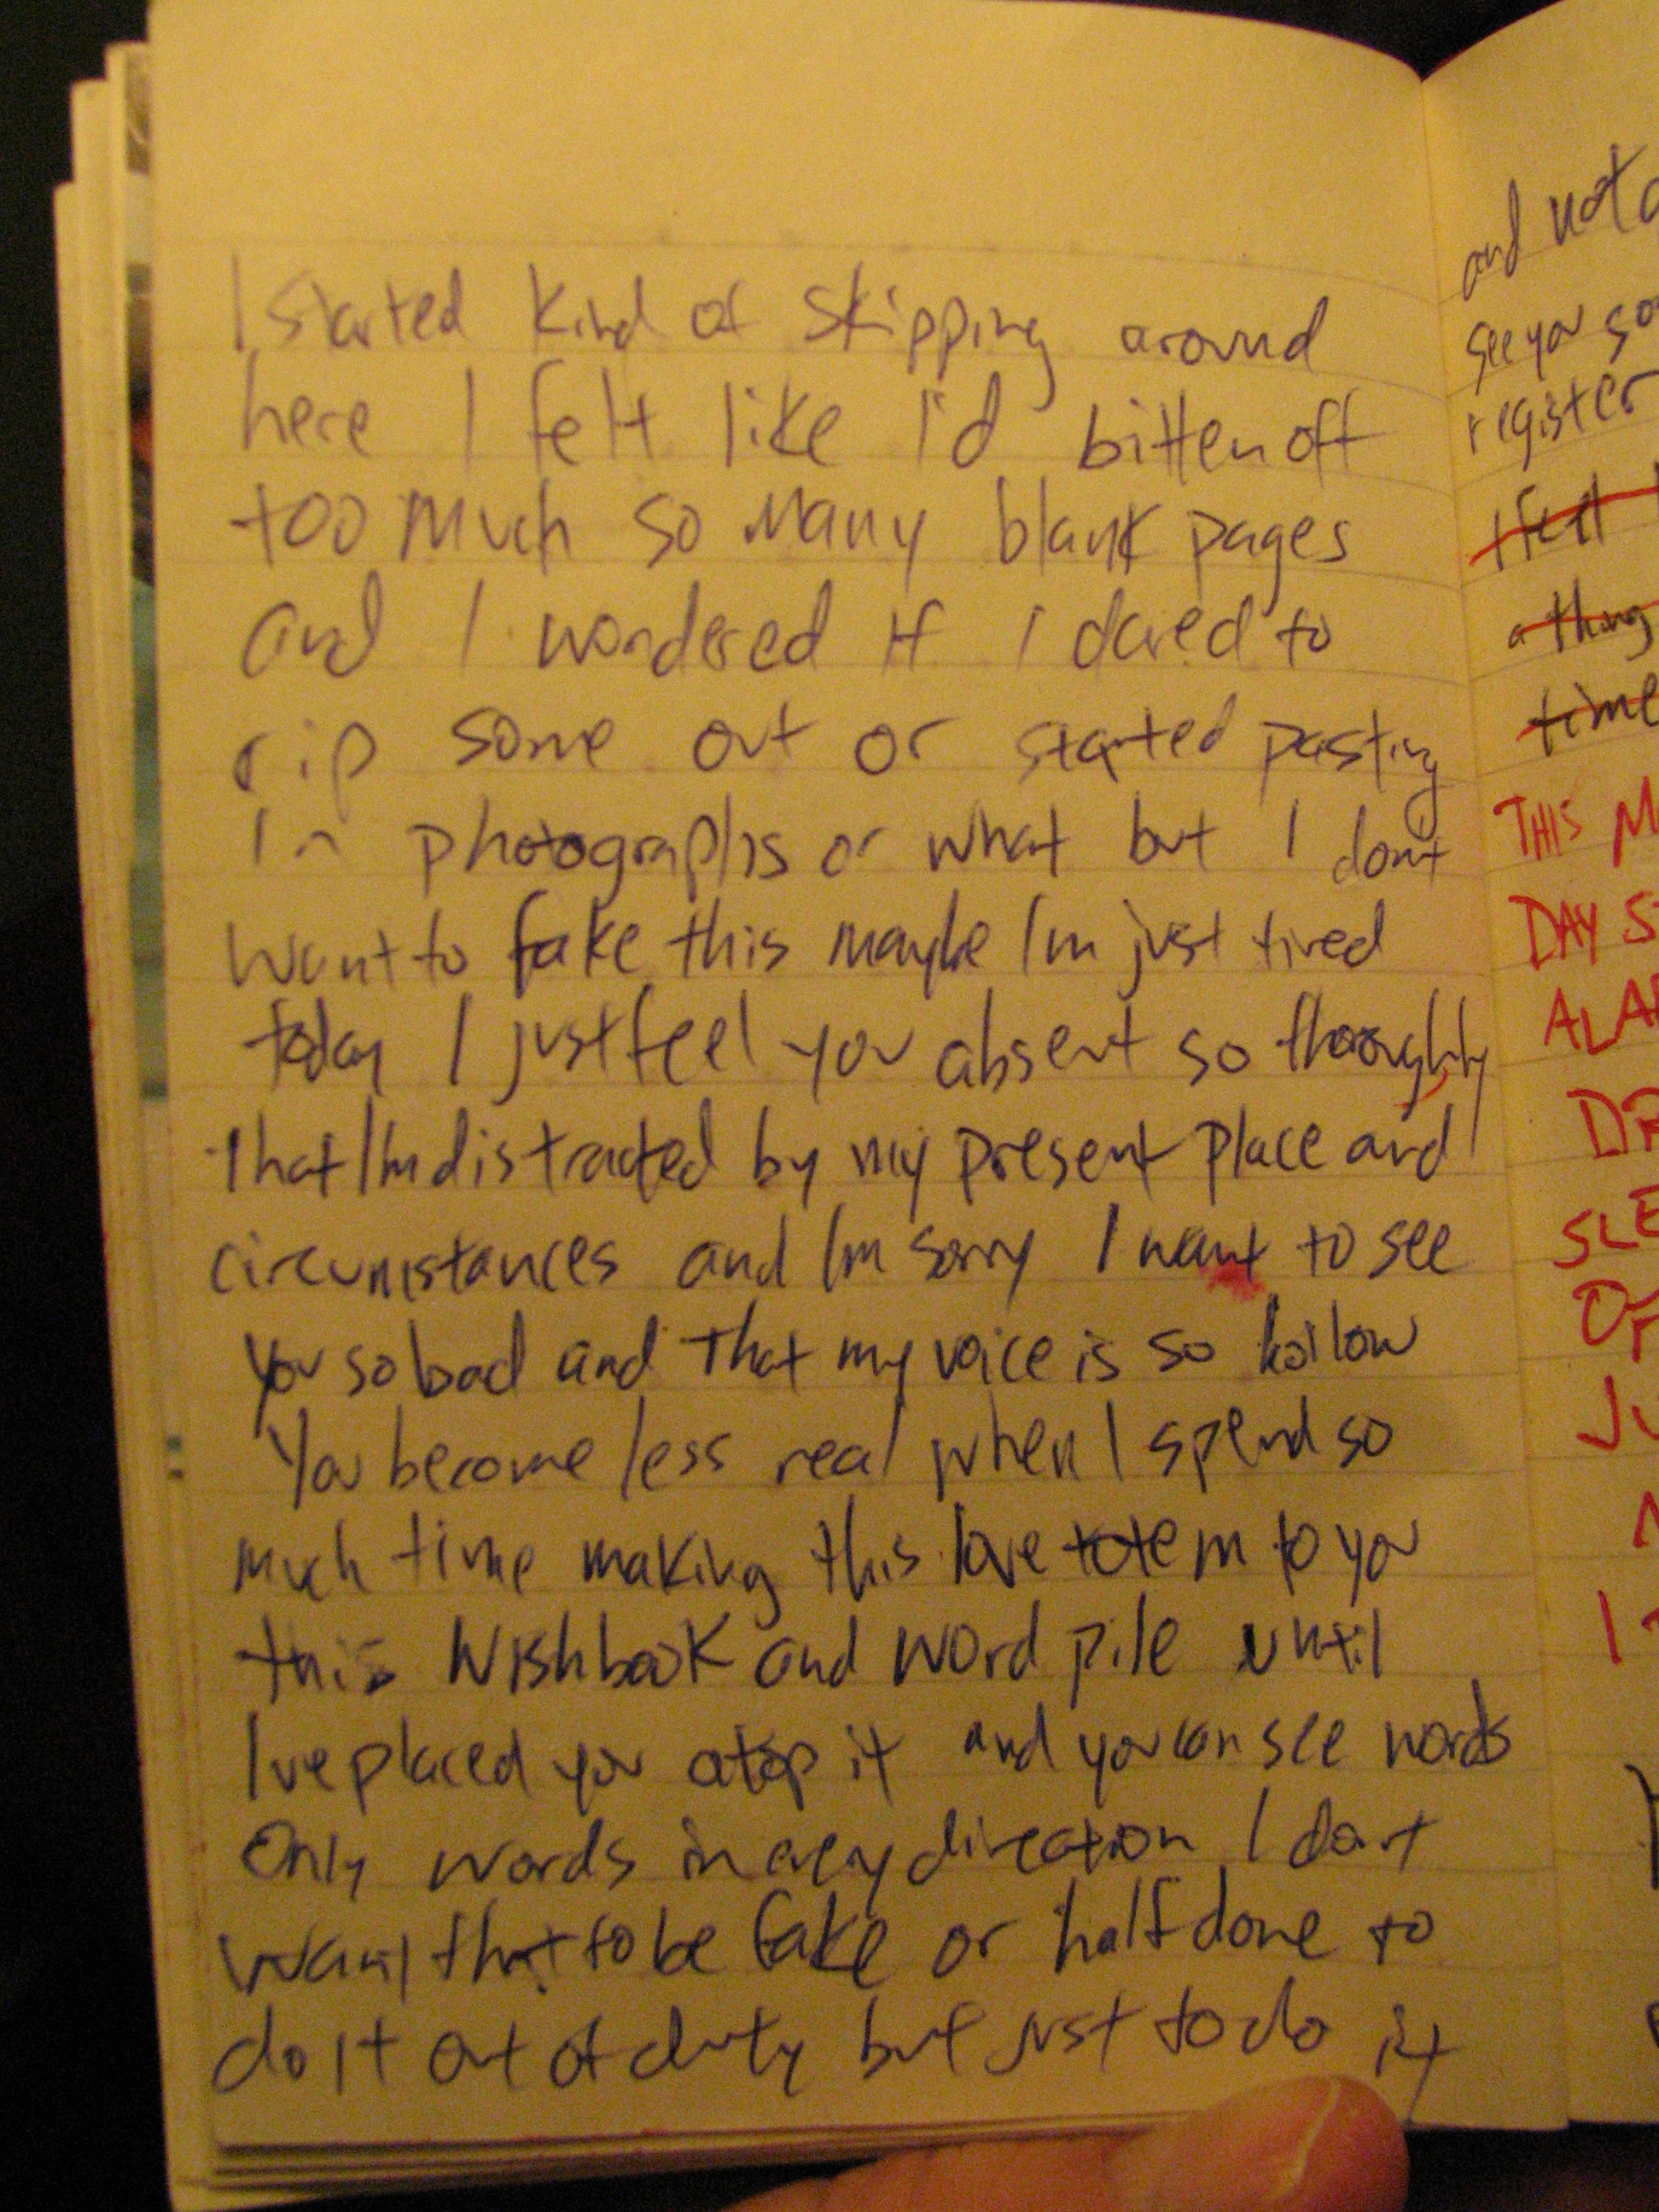 I started kind of skipping around
here I felt like I'd bitten off
too much so many blank pages
and I wondered if I dared to
rip some out or started pasting
in photographs or what but I dont
want to fake this maybe Im just tired
today I just feel you absent so thoroughly
that Im distracted by my present place and
circumstances and Im sorry I want to see
you so bad and that my voice is so hollow
You become less real when I spend so
much time making this love totem to you
this wishbook and word pile until
Ive placed you atop it and you can see words
Only words in every direction I dont
want that to be fake or half done to
do it out of duty but just to do it
and not
see you
register
I feel
a thing
time
THIS
DAY